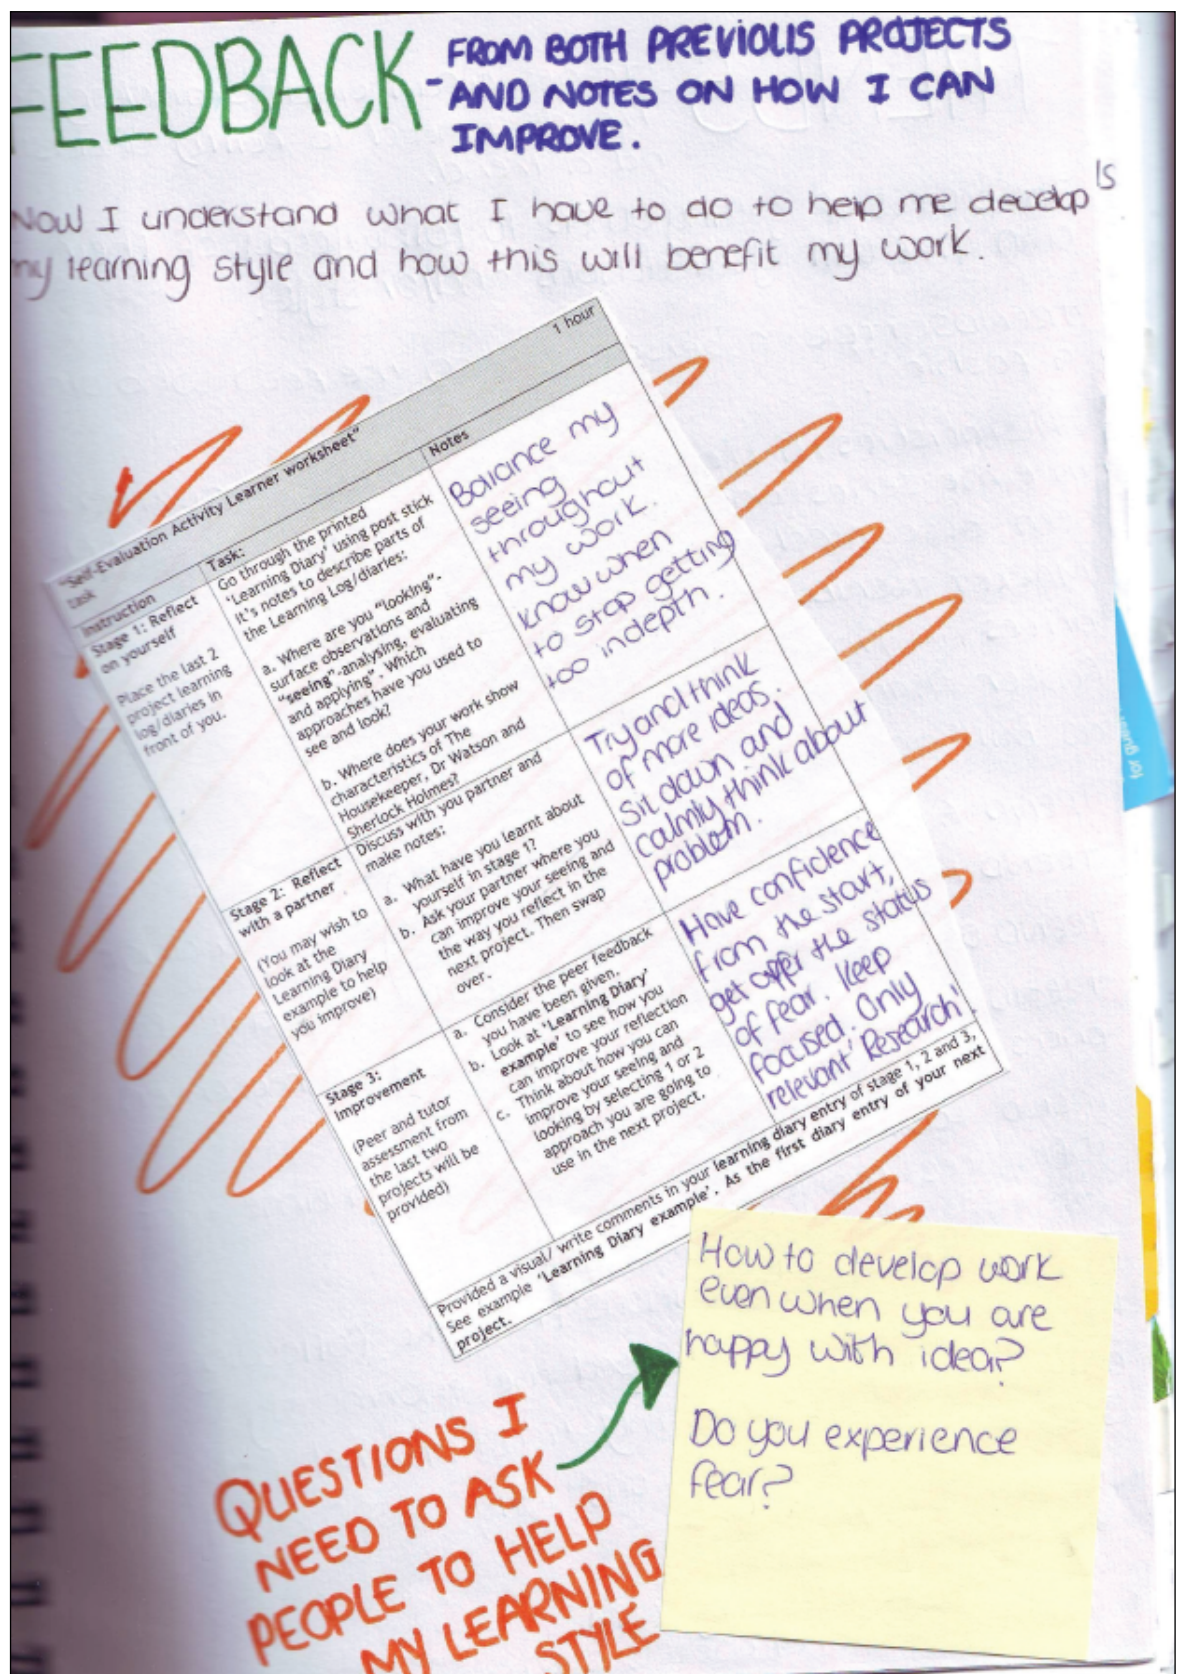 FEEDBACK - FROM BOTH PREVIOUS PROJECTS
AND NOTES ON HOW I CAN
IMPROVE.
Now I understand what I have to do to help me develop
is
my learning style and how this will benefit my work.
"Self-Evaluation Activity Learner worksheet"
task
1 hour
Instruction
Task:
Notes
Stage 1: Reflect
on yourself
Place the last 2
project learning
log/diaries in
front of you.
Go through the printed
'Learning Diary' using post stick
it's notes to describe parts of
the Learning Log/diaries:
a. Where are you "looking"-
surface observations and
"seeing"-analysing, evaluating
and applying". Which
approaches have you used to
see and look?
b. Where does your work show
characteristics of The
Housekeeper, Dr Watson and
Sherlock Holmes?
Balance my
seeing
throughout
my work.
Know when
to stop getting
too indepth.
Stage 2: Reflect
with a partner
(You may wish to
look at the
Learning Diary
example to help
you improve)
Discuss with you partner and
make notes:
a. What have you learnt about
yourself in stage 1?
b. Ask your partner where you
can improve your seeing and
the way you reflect in the
next project. Then swap
over.
Try and think
of more ideas.
Sit down and
calmly think about
problem.
Stage 3:
Improvement
(Peer and tutor
assessment from
the last two
projects will be
provided)
a. Consider the peer feedback
you have been given.
b. Look at 'Learning Diary'
example' to see how you
can improve your reflection
c. Think about how you can
improve your seeing and
looking by selecting 1 or 2
approach you are going to
use in the next project.
Have confidence
from the start,
get offer the status
of fear. Keep
focused. Only
relevant 'Research'.
Provided a visual/ write comments in your learning diary entry of stage 1, 2 and 3,
See example 'Learning Diary example'. As the first diary entry of your next
project.
How to develop work
even when you are
happy with idea?
Do you experience
fear?
QUESTIONS I
NEED TO ASK
PEOPLE TO HELP
MY LEARNING
STYLE